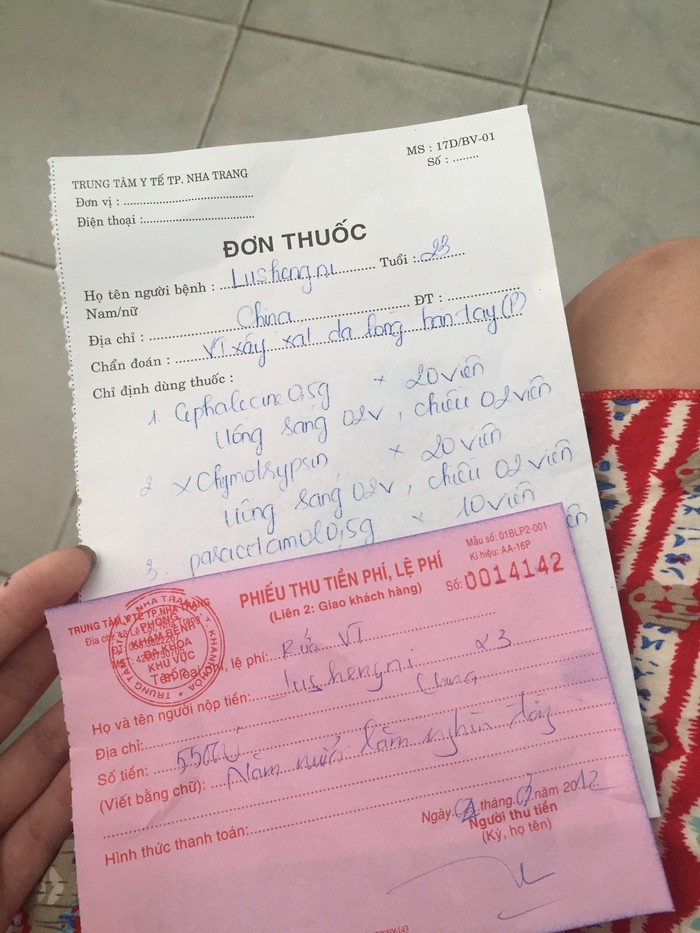 TRUNG TÂM Y TẾ TP. NHA TRANG
MS : 17D/BV-01
Đơn vị :
Số :
Điện thoại :
ĐƠN THUỐC
Họ tên người bệnh : Lushengni Tuổi : 23
Nam/nữ
Địa chỉ : China ĐT :
Chẩn đoán : VT xây xát da lòng bàn tay (P)
Chỉ định dùng thuốc :
1. Cephalecine 0,5g × 20 viên
Uống sáng 02v, chiều 02 viên
2 × Chymotrypsin × 20 viên
Uống sáng 02v, chiều 02 viên
3. paracetamol 0,5g × 10 viên
PHIẾU THU TIỀN PHÍ, LỆ PHÍ
(Liên 2: Giao khách hàng)
Mẫu số: 01BLP2-001
Kí hiệu: AA-16P
Số: 0014142
TRUNG TÂM Y TẾ TP.NHA TRANG
PHÒNG KHÁM BỆNH ĐA KHOA KHU VỰC
lệ phí: Rửa VT
Họ và tên người nộp tiền: lushengni 23
Địa chỉ: China
Số tiền:
(Viết bằng chữ): Năm mươi lăm nghìn đồng
Hình thức thanh toán:
Ngày tháng năm 2012
Người thu tiền
(Ký, họ tên)